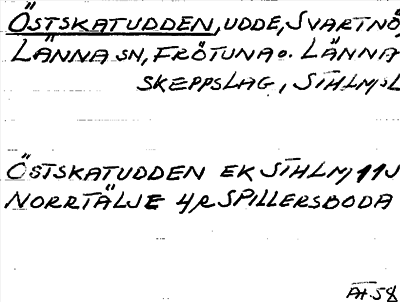 ÖSTSKATUDDEN, UDDE, SVARTNÖ,
LÄNNA SN, FRÖTUNA o. LÄNNA
SKEPPSLAG, STHLMSL
ÖSTSKATUDDEN EK STHLM 11J
NORRTÄLJE 4R SPILLERSBODA
AH 58